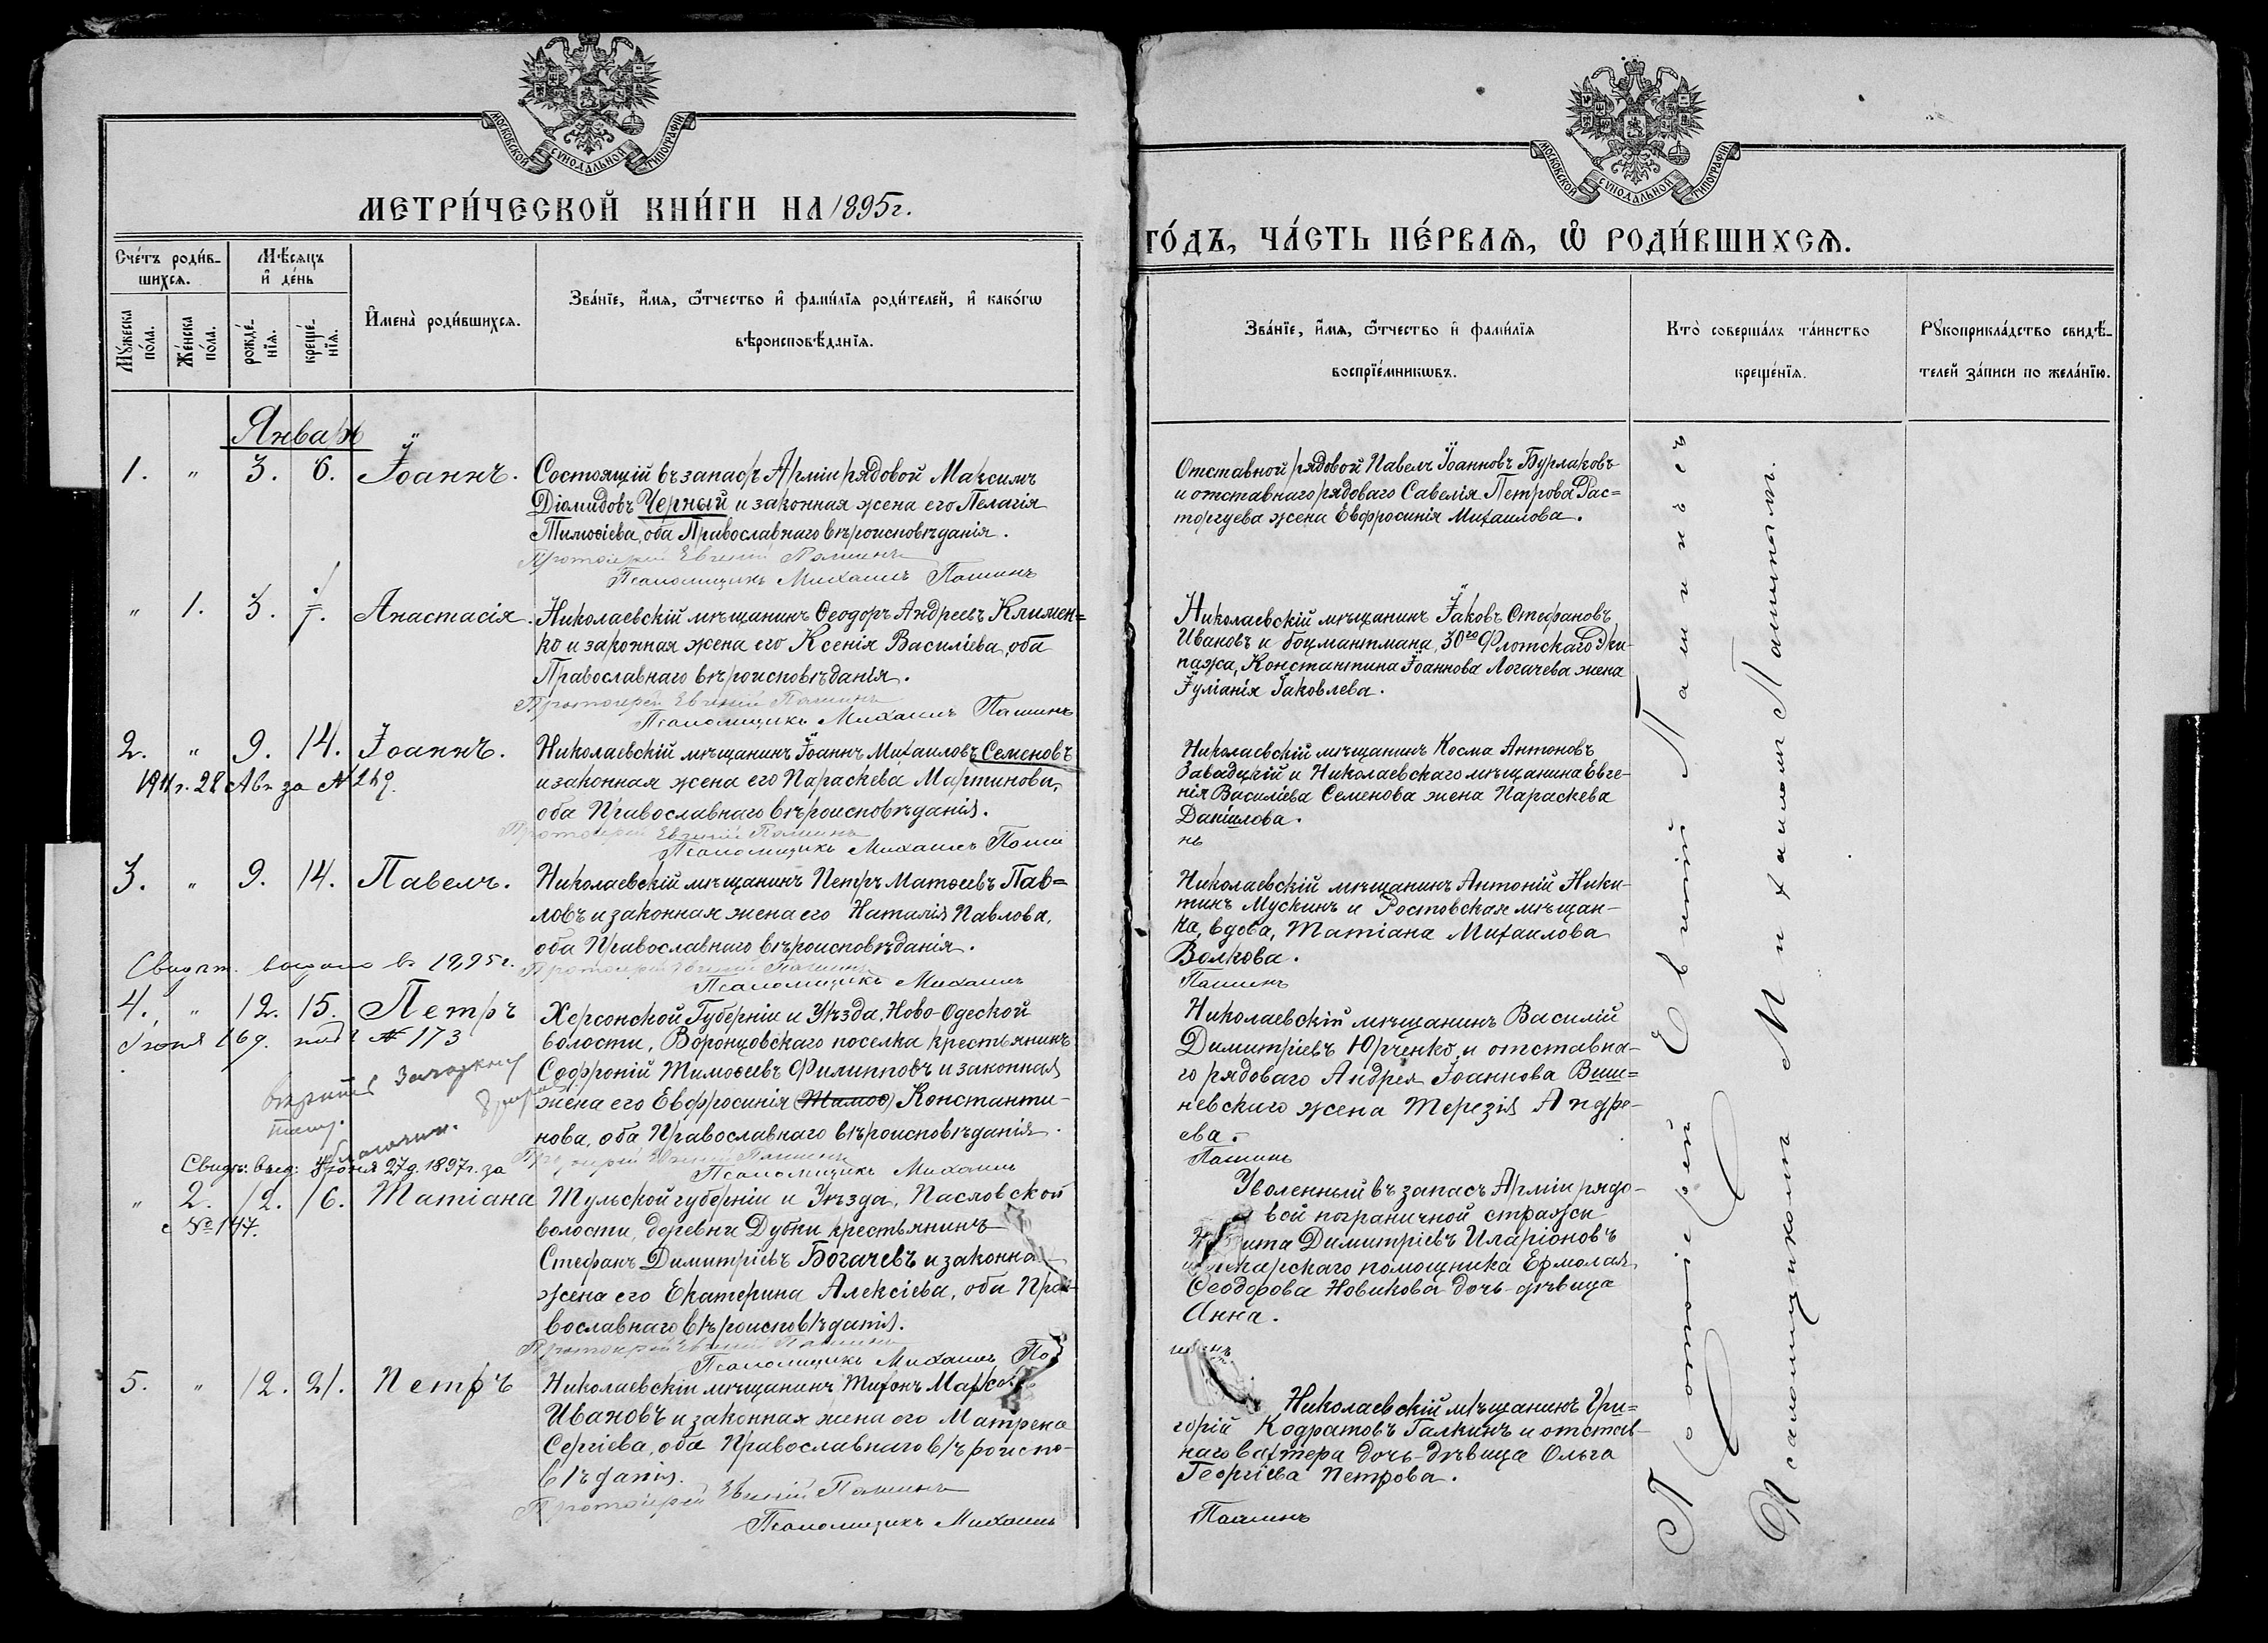 МОСКОВСКОЙ СУНОДАЛЬНОЙ ТИПОГРАФІИ
МЕТРИ́ЧЕСКОЙ КНИ́ГИ НА 1895 г.
Сче́тъ роди́в-
шихсѧ.
Мѣ́сѧцъ
и҆ де́нь
Мꙋ́жеска
по́ла.
Же́нска
по́ла.
рожде́-
нїѧ.
креще́-
нїѧ.
И҆мена̀ роди́вшихсѧ.
Зва́нїе, и҆́мѧ, ѻ҆́тчество и҆ фами́лїѧ роди́телей, и҆ како́гѡ
вѣроисповѣ́данїѧ.
Январь
1. " 3. 6. Іоаннъ.
Состоящій въ запасѣ Арміи рядовой Максимъ
Діомидовъ Черный и законная жена его Пелагія
Тимоѳіева, оба Православнаго вѣроисповѣданія.
Протоіерей Евгеній Пашинъ
Псаломщикъ Михаилъ Пашинъ
" 1. 3. 7. Анастасія.
Николаевскій мѣщанинъ Ѳеодоръ Андреевъ Климен=
ко и законная жена его Ксенія Василіева, оба
Православнаго вѣроисповѣданія.
Протоіерей Евгеній Пашинъ
Псаломщикъ Михаилъ Пашинъ
2. " 9. 14. Іоаннъ.
Николаевскій мѣщанинъ Іоаннъ Михаиловъ Семеновъ
и законная жена его Параскева Мартинова,
оба Православнаго вѣроисповѣданія.
1911 г. 28 Авг за № 249.
Протоіерей Евгеній Пашинъ
Псаломщикъ Михаилъ Паши
3. " 9. 14. Павелъ.
Николаевскій мѣщанинъ Петръ Матѳеевъ Пав=
ловъ и законная жена его Наталія Павлова,
оба Православнаго вѣроисповѣданія.
Протоіерей Евгеній Пашинъ
Псаломщикъ Михаилъ
4. " 12. 15. Петръ
Июня 16 д. под № 173
Херсонской Губерніи и Уѣзда, Ново-Одеской
волости, Воронцовскаго поселка крестьянинъ
Софроній Тимоѳеевъ Филипповъ и законная
жена его Евфросинія (Тимоѳ) Константи-
нова, оба Православнаго вѣроисповѣданія.
Протоіерей Евгеній Пашинъ
Псаломщикъ Михаилъ
Свид: выд: Іюня 27 д. 1897 г. за
" 2. 12. 16. Татіана
с №147.
Тульской губерніи и Уѣзда, Пасловской
волости, деревни Дубки крестьянинъ
Стефанъ Димитріевъ Богачевъ и законна
жена его Екатерина Алексіева, оба Пра-
вославнаго вѣроисповѣданія.
Протоіерей Евгеній Пашинъ
Псаломщикъ Михаилъ Па
5. " 12. 21. Петръ
Николаевскій мѣщанинъ Тихонъ Марко
Ивановъ и законная жена его Матрена
Сергіева, оба Православнаго вѣроиспо-
вѣданія.
Протоіерей Евгеній Пашинъ
Псаломщикъ Михаилъ
МОСКОВСКОЙ СУНОДАЛЬНОЙ ТИПОГРАФІИ
ГО́ДЪ, ЧА́СТЬ ПЕ́РВАѦ, Ѽ РОДИ́ВШИХСѦ.
Зва́нїе, и҆́мѧ, ѻ҆́тчество и҆ фами́лїѧ
воспрїе́мникѡвъ.
Кто̀ соверша́лъ та́инство
креще́нїѧ.
Рꙋкоприкла́дство свидѣ́-
телей за́писи по жела́нїю.
Отставной рядовой Павелъ Іоанновъ Бурлаковъ
и отставнаго рядоваго Савелія Петрова Рас=
торгуева жена Евфросинія Михаилова.
Николаевскій мѣщанинъ Іаковъ Стефановъ
Ивановъ и боцманмана, 30го Флотскаго Эки-
пажа, Константина Іоаннова Логачева жена
Іуліанія Іаковлева.
Николаевскій мѣщанинъ Косма Антоновъ
Завадцкій и Николаевскаго мѣщанина Евге-
нія Василіева Семенова жена Параскева
Даніилова.
нъ
Николаевскій мѣщанинъ Антоній Ники-
тинъ Мускинъ и Ростовская мѣщан-
ка, вдова, Татіана Михаилова
Волкова.
Пашинъ
Николаевскій мѣщанинъ Василій
Димитріевъ Юрченко и отставна-
го рядоваго Андрея Іоаннова Виш=
невскаго жена Терезія Андре-
ева.
Пашинъ
Уволенный въ запасъ Арміи рядо-
вой пограничной стражи
Димитріевъ Иларіоновъ
помощника Ермолая
Ѳеодорова Новикова дочь-дѣвица
Анна.
Николаевскій мѣщанинъ Гри=
горій Кодратовъ Галкинъ и отстав-
наго вахтера дочь-дѣвица Ольга
Георгіева Петрова.
Пашинъ
Протоіерей Евгеній Пашинъ съ
Псаломщикомъ Михаиломъ Пашинымъ.